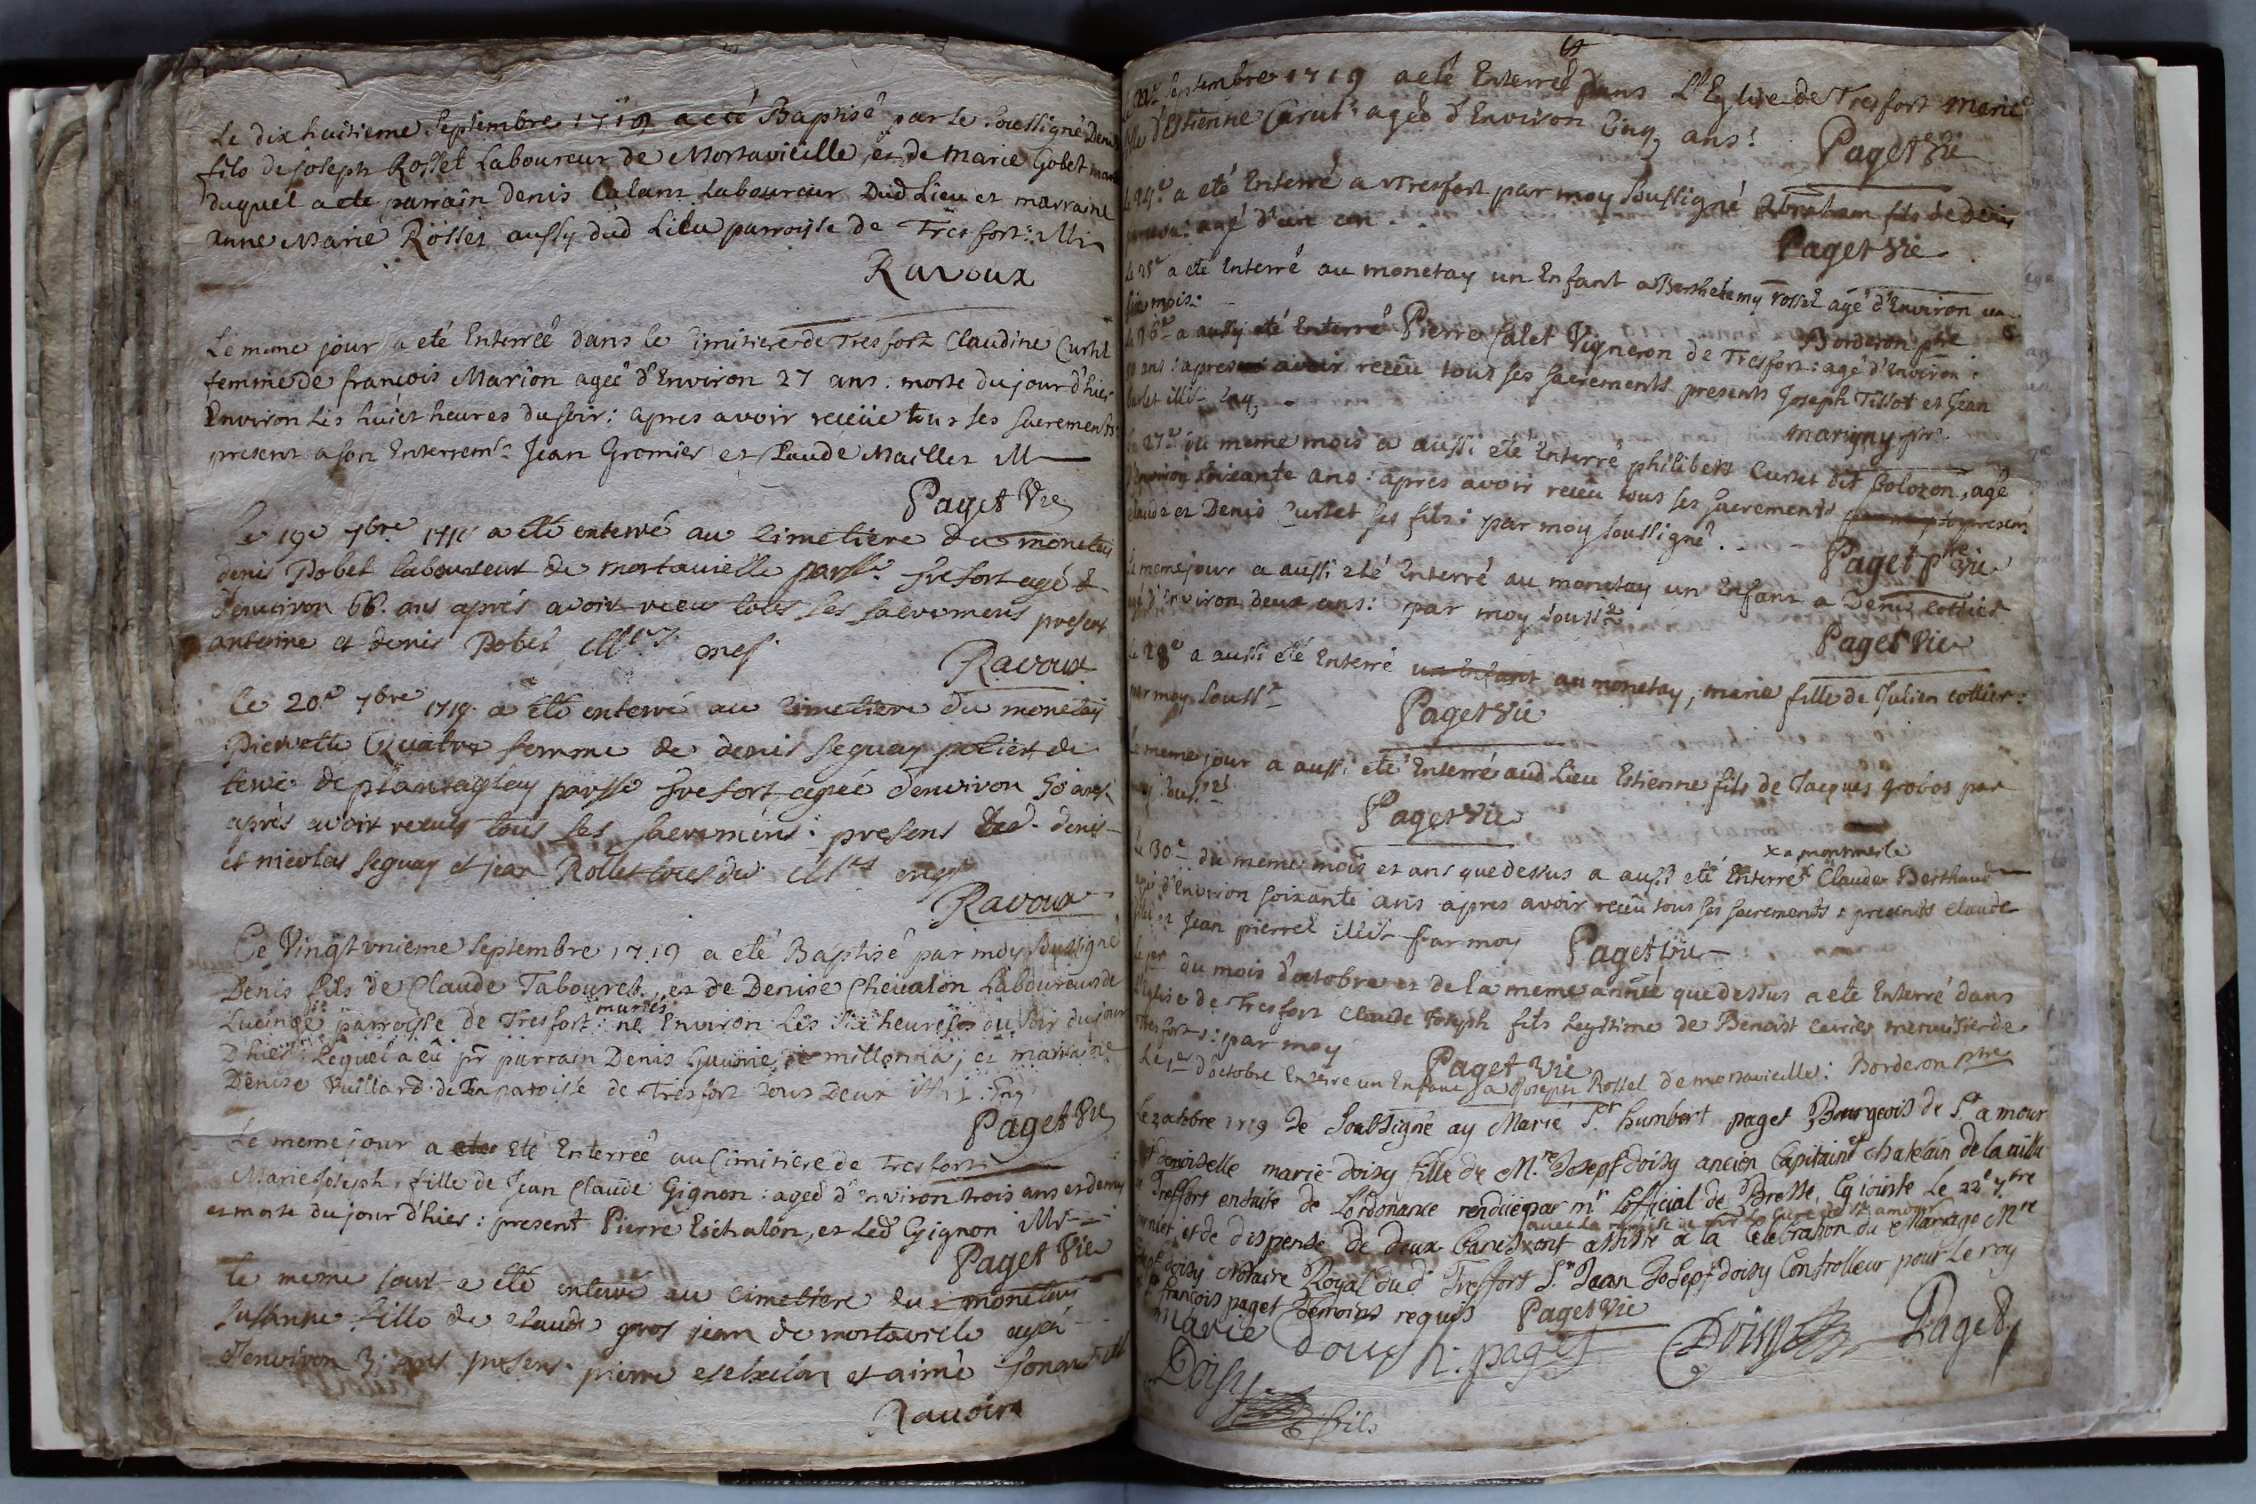 Le dix huitieme Septembre 1719 a eté Baptisé par le soussigné Denis
fils de Joseph Rosset Laboureur de Mortavieille, et de Marie Gobet
duquel a eté parrain Denis Calant Laboureur Dud Lieu et marraine
anne Marie Rosset aussy dud Lieu parroisse de Tresfort: Illi
Ravoux
Le meme jour a eté Enterreé dans le Cimitiere de Tresfort Claudine Curtil
femme de françois Marion ageé d'Environ 27 ans: morte du jour d'hier
Environ les huict heures du soir: apres avoir receüe tous ses sacrements:
present a son Enterremt Jean Gromier et Claude Maillet Ill
Paget Vic
Le 19e 7bre 1719 a eté enterré au cimetiere du monetay
denis Pobel laboureur de mortavieille parsse Trefort agé
d'environ 66 ans aprés avoir receu tous ses sacremens presens
antoine et denis Pobel, Ill
Ravoux
Ce 20e 7bre 1719 a eté enterré au cimetiere du monetay
Pierrette Quatre femme de denis seguay
de plantaglay parsse Trefort ageé d'environ 50 ans
aprés avoir receus tous ses sacremens: presens led. denis
et nicolas seguay et jean Rollet tous du Ill
Ravoux
Ce Vingt unieme Septembre 1719 a eté Baptisé par moy soussigné
Denis fils de Claude Tabouret, et de Denise Chevalon Laboureurs de
mariés
Lucinge parroisse de Tresfort: né Environ les six heures du soir du jour
D'hier: Lequel a eû pr parrain Denis Guunie de millonna; et marraine
Denise Vuillard de la paroisse de Tresfort tous deux Ill
Paget Vic
Le meme jour a eté Enterreé au Cimitiere de Tresfort
Marie Joseph, fille de Jean Claude Gignon: ageé d'Environ trois ans et demy
et morte du jour d'hier: present Pierre Eschalon, et Led Gignon Ill
Paget Vic
Le meme jour a eté enterré au cimetiere du monetay
Susanne fille de claude gros jean de mortavielle ageé
d'environ 3 ans presens pierre eschalon et aimé
Ravoux
Septembre 1719 a eté Enterreé Dans L'Eglise de Tresfort Marie
fille d'Estienne Carut ageé d'Environ Cinq ans:
Paget Vic
Le 24e a eté Enterré a Tresfort par moy soussigné Abraham fils de Denis
agé d'un an.
Paget Vic
Le 25e a eté Enterré au monetay un Enfant a Berthelemy rosset agé d'Environ un
six mois:
Borderon ptre
Le 26e a aussy eté Enterré Pierre Calet Vigneron de Tresfort: agé d'Environ
ans: apres avoir receu tous ses sacrements presents Joseph Tissot et Jean
Marigny ptre
Le 27e du meme mois a aussi eté Enterré philibert Curtet dit Bolozon, agé
d'Environ soixante ans: apres avoir receu tous ses sacrements presens
claude et Denis Curtet ses fils: par moy soussigné.
Paget ptre vic
Le meme jour a aussi eté Enterré au monetay un Enfant a Denis cottier
agé d'Environ deux ans: par moy souss
Paget Vic
Le 28e a aussi eté Enterré un Enfant au monetay, marie fille de Julien cottier:
par moy souss
Paget Vic
Le meme jour a aussi eté Enterré aud Lieu Estienne fils de Jacques grobos par
moy souss
Paget Vic
x a montmerle
Le 30e du meme mois et ans que dessus a aussi eté Enterré Claude Berthaud
agé d'Environ soixante ans apres avoir receu tous ses sacrements: presents claude
et Jean pierrel Illi par moy Paget Vic
Le 1er du mois d'octobre et de la meme année que dessus a eté Enterré dans
l'Eglise de Tresfort Claude Joseph fils Legitime de Benoist menuisier de
Tresfort: par moy
Paget Vic
Le 1er d'octobre Enterré un Enfant a Joseph Rosset de mortavieille: Borderon ptre
Le 2 octobre 1719 Je Soubsigné ay Marié Sr humbert paget Bourgeois de St amour
et demoiselle marie doisy fille de Mre Josepf doisy ancien Capitaine chatelain de la ville
de Treffort ensuite de L'ordonnance rendüe par mr l'official de Bresse Cy jointe Le 22e 7bre
avec la remise de mr le Curé de St amour
et de dispense de deux bans ont assisté a la Celebration du Mariage Mre
doisy Notaire Royal dud Treffort Sr Jean Josepf doisy Controlleur pour le roy
françois paget Temoins requis Paget Vic
marie doisy h. paget Doisy Paget
Doisy fils